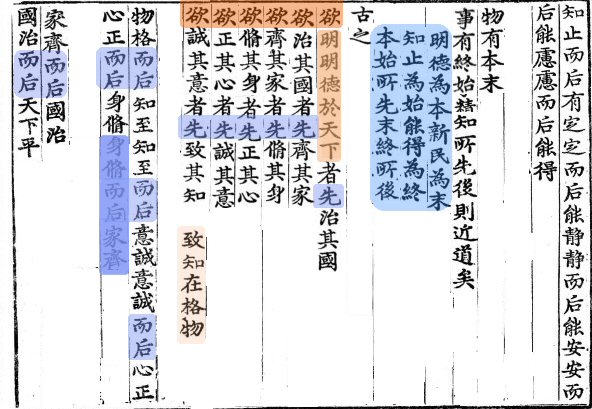 知止而后有定定而后能靜靜而后能安安而
后能慮慮而后能得
物有本末
事有終始知所先後則近道矣
明德為本新民為末
知止為始能得為終
本始所先末終所後
古之
欲明明德於天下者先治其國
欲治其國者先齊其家
欲齊其家者先脩其身
欲脩其身者先正其心
欲正其心者先誠其意
欲誠其意者先致其知
致知在格物
物格而后知至知至而后意誠意誠而后心正
心正而后身脩身脩而后家齊
家齊而后國治
國治而后天下平